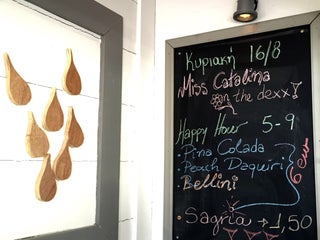 Κυριακή 16/8
Miss Catalina
on the dexx!
Happy Hour 5-9
• Pina Colada
• Peach Daquiri
• Bellini
6 eu
Sagria → 1,50